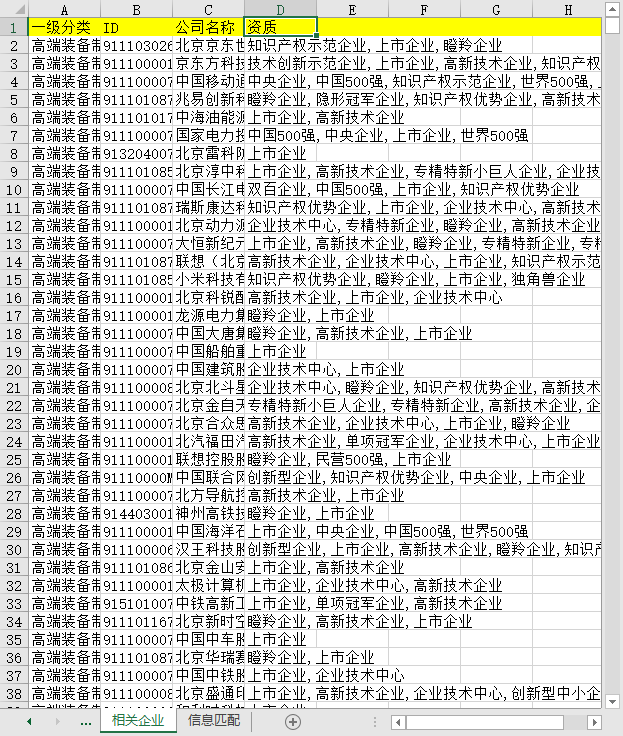 A B C D E F G H
1 一级分类 ID 公司名称 资质
2 高端装备 911103026 北京京东 知识产权示范企业,上市企业,瞪羚企业
3 高端装备 911100001 京东方科技 技术创新示范企业,上市企业,高新技术企业,知识产权
4 高端装备 911100007 中国移动 中央企业,中国500强,知识产权示范企业,世界500强,
5 高端装备 911101087 兆易创新 瞪羚企业,隐形冠军企业,知识产权优势企业,高新技术
6 高端装备 911101017 中海油能 上市企业,高新技术企业
7 高端装备 911100007 国家电力 中国500强,中央企业,上市企业,世界500强
8 高端装备 913204007 北京雷科 上市企业
9 高端装备 911101085 北京淳中 上市企业,高新技术企业,专精特新小巨人企业,企业技
10 高端装备 911100007 中国长江 双百企业,中国500强,上市企业,知识产权优势企业
11 高端装备 911101087 瑞斯康达 知识产权优势企业,上市企业,企业技术中心,高新技术
12 高端装备 911100001 北京动力 企业技术中心,专精特新企业,瞪羚企业,高新技术企业
13 高端装备 911100007 大恒新纪 上市企业,高新技术企业,瞪羚企业,专精特新企业,专
14 高端装备 911101087 联想（北 高新技术企业,企业技术中心,上市企业,知识产权示范
15 高端装备 911101085 小米科技 知识产权优势企业,瞪羚企业,上市企业,独角兽企业
16 高端装备 911100001 北京科锐 高新技术企业,上市企业,企业技术中心
17 高端装备 911100001 龙源电力 瞪羚企业,上市企业
18 高端装备 911100007 中国大唐 瞪羚企业,高新技术企业,上市企业
19 高端装备 911100007 中国船舶 上市企业
20 高端装备 911100007 中国建筑 企业技术中心,上市企业
21 高端装备 911100008 北京北斗 瞪羚企业,知识产权优势企业,上市企业,高新技术
22 高端装备 911100007 北京金自 专精特新小巨人企业,专精特新企业,高新技术企业,企
23 高端装备 911100007 北京合众 高新技术企业,企业技术中心,上市企业,瞪羚企业
24 高端装备 911100001 北汽福田 高新技术企业,单项冠军企业,企业技术中心,上市企业
25 高端装备 911100001 联想控股 瞪羚企业,民营500强,上市企业
26 高端装备 91110000M 中国联合 创新型企业,知识产权优势企业,中央企业,上市企业
27 高端装备 911100007 北方导航 高新技术企业,上市企业
28 高端装备 914403001 神州高铁 瞪羚企业,上市企业
29 高端装备 911100001 中国海洋 上市企业,中央企业,中国500强,世界500强
30 高端装备 911100006 汉王科技 创新型企业,上市企业,高新技术企业,瞪羚企业,知识
31 高端装备 911101086 北京金山 上市企业,高新技术企业
32 高端装备 911100001 太极计算 上市企业,企业技术中心,高新技术企业
33 高端装备 915101007 中铁高新 上市企业,单项冠军企业,高新技术企业
34 高端装备 911101167 北京新时 瞪羚企业,高新技术企业,上市企业
35 高端装备 911100007 中国中车 上市企业
36 高端装备 911101087 北京华瑞 瞪羚企业,上市企业
37 高端装备 911100007 中国中铁 上市企业,企业技术中心
38 高端装备 911100008 北京盛通 上市企业,高新技术企业,企业技术中心,创新型中小企
... 相关企业 信息匹配